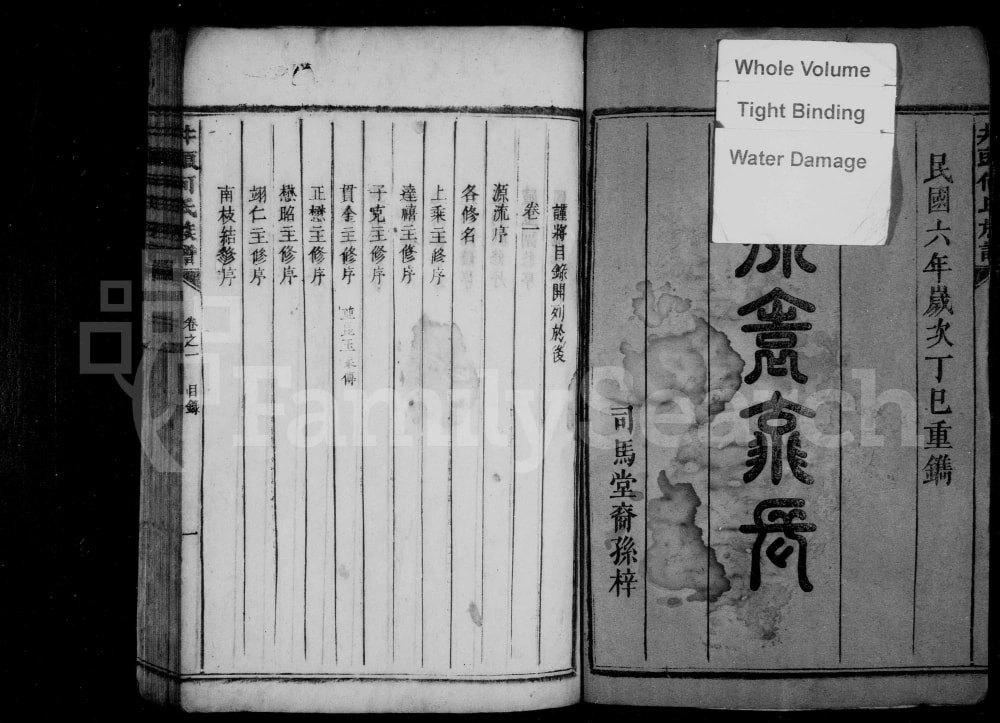 Whole Volume
Tight Binding
Water Damage
民國六年歲次丁巳重鐫
源遠流長
司馬堂裔孫梓
謹將目錄開列於後
卷一
源流序
各修名
上乘主修序
達禧主修序
子克主修序
貫金主修序
正懋主修序
懋昭主修序
翊仁主修序
南枝結修序
井頭何氏族譜
卷之一
目錄
一
FamilySearch